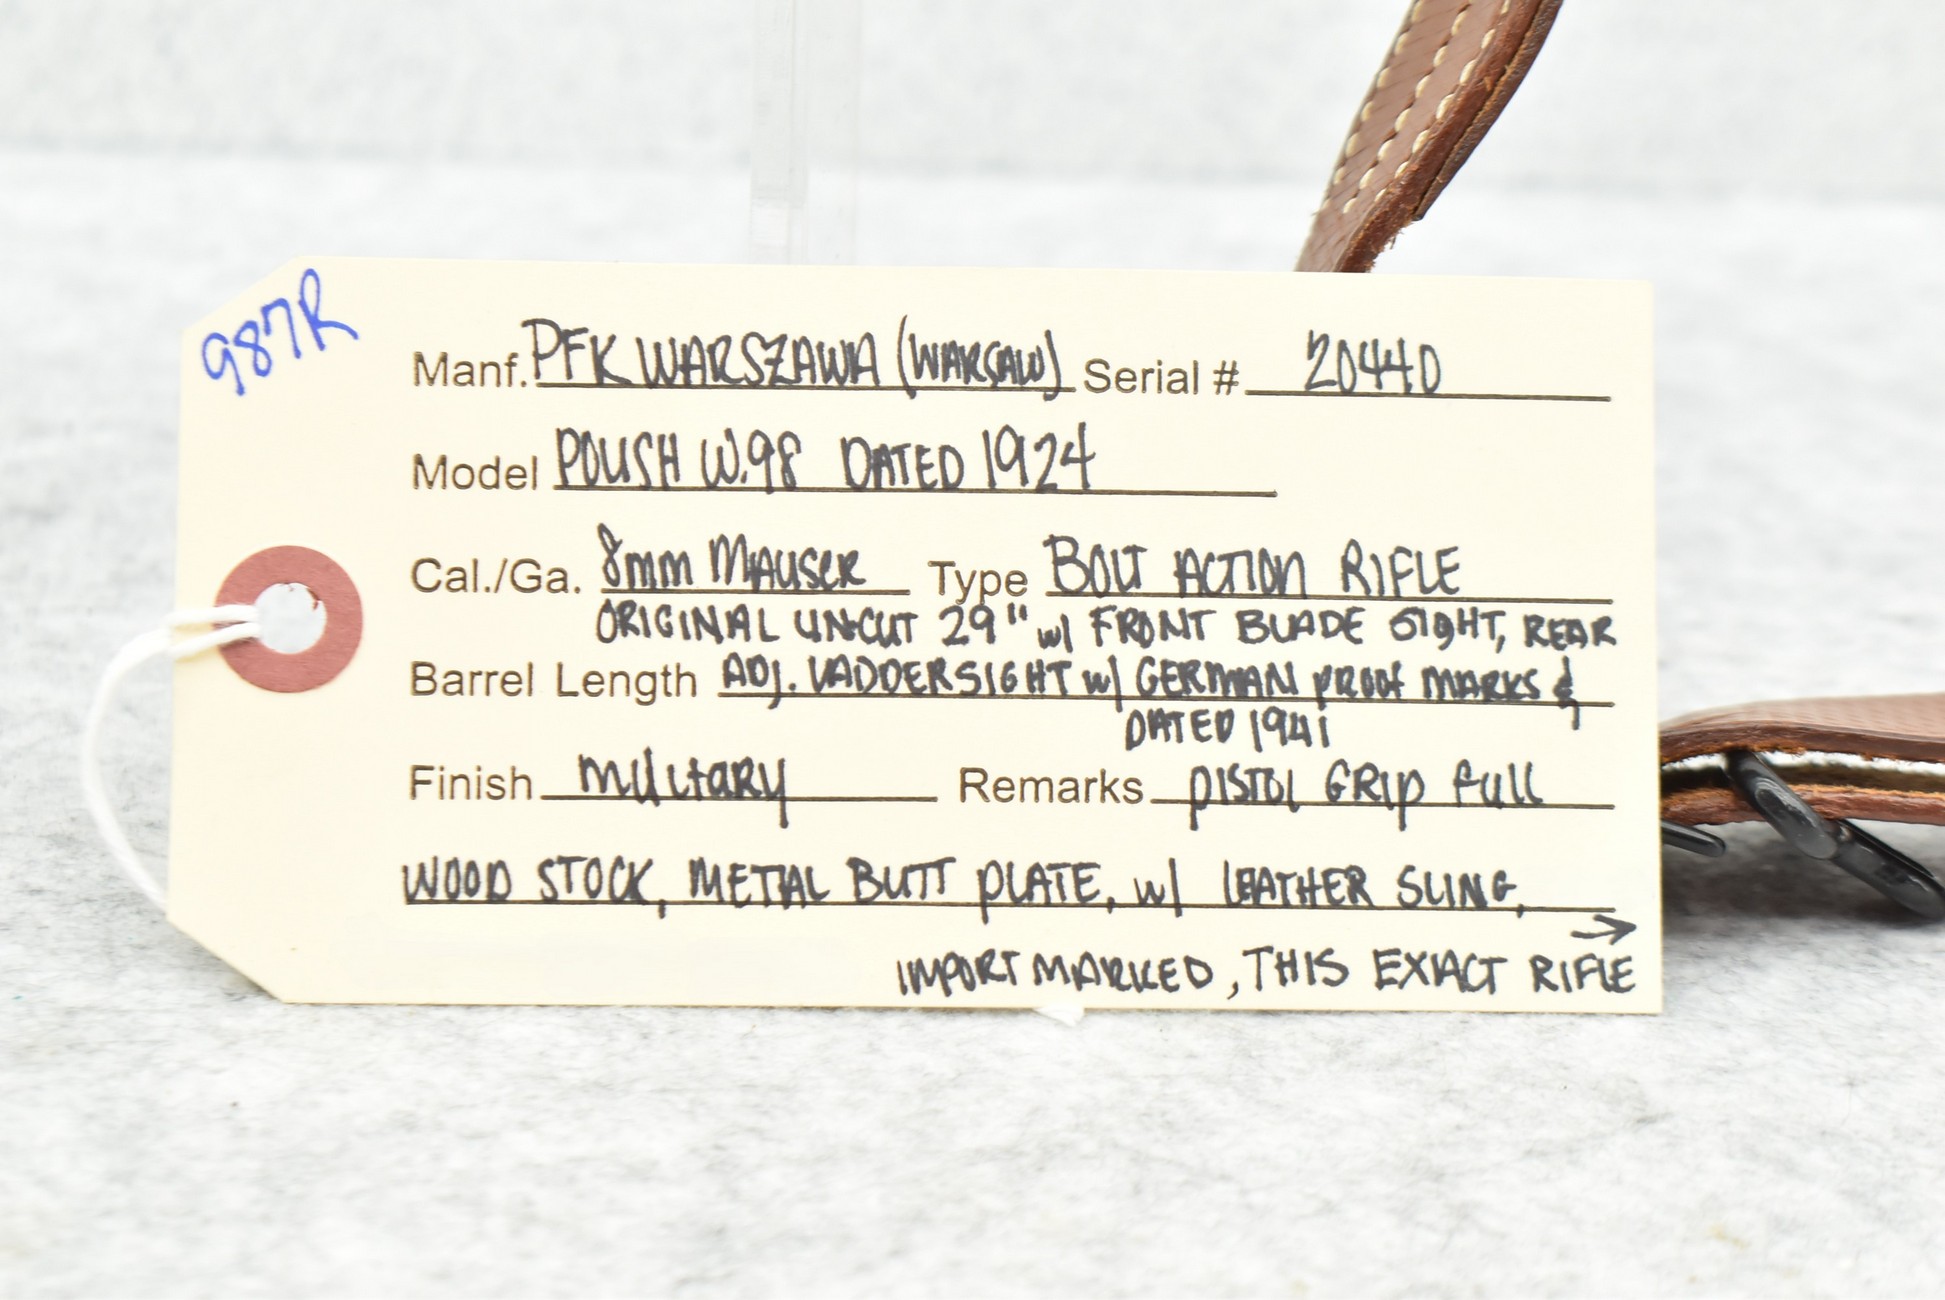 987R
Manf. PFK WARSZAWA (WARSAW) Serial # 20440
Model POLISH W.98 DATED 1924
Cal./Ga. 8mm MAUSER Type BOLT ACTION RIFLE
ORIGINAL UNCUT 29" w/ FRONT BLADE SIGHT, REAR
Barrel Length ADJ. LADDER SIGHT w/ GERMAN PROOF MARKS &
DATED 1941
Finish MILITARY Remarks PISTOL GRIP FULL
WOOD STOCK, METAL BUTT PLATE, w/ LEATHER SLING,
→
IMPORT MARKED, THIS EXACT RIFLE